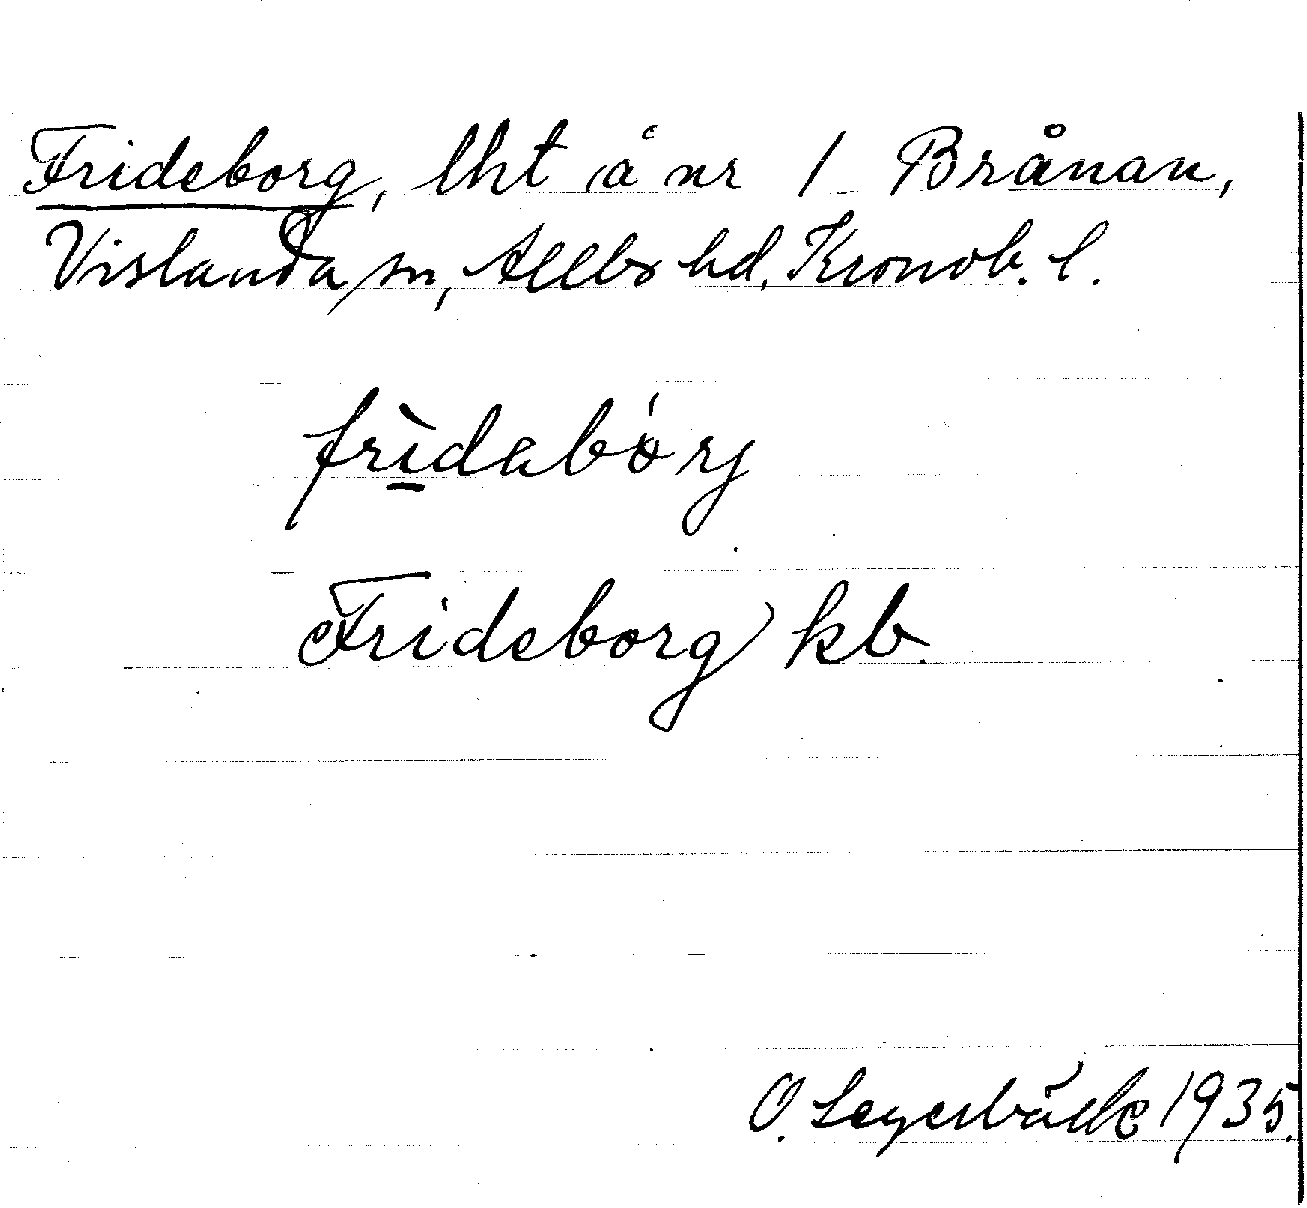 Frideborg, lht å nr 1 Brånan,
Vislanda sn, Allbo hd, Kronob. l.
frìdabórj
Frideborg kb.
O. Legerbäck 1935.